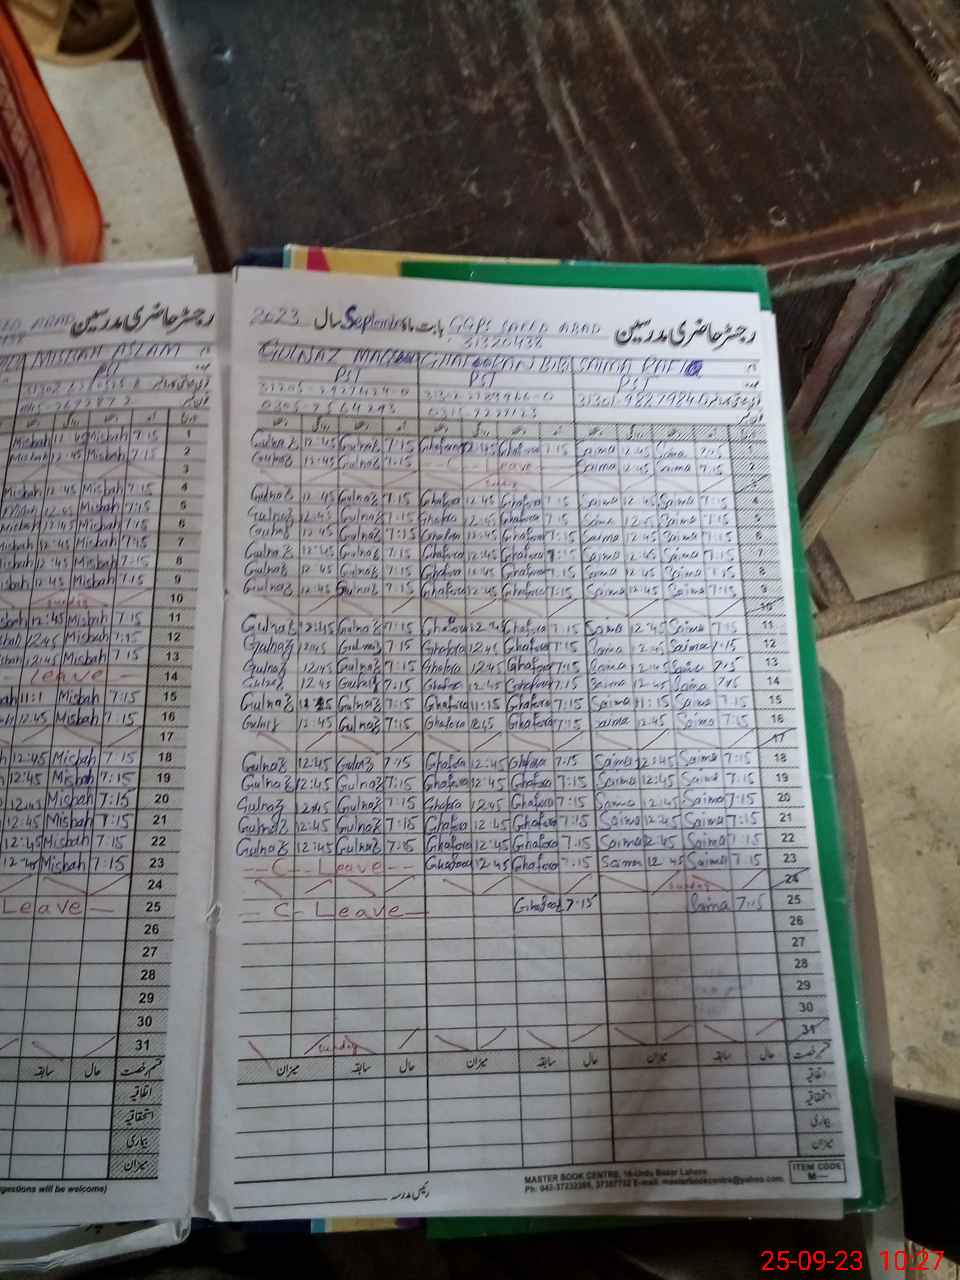 رجسٹر حاضری مدرسین
MISBAH ASLAM
PST
رجسٹر حاضری مدرسین GGPS SAEED ABAD بابت ماہ September سال 2023
31320438
GULNAZ GHAFOORAN BIBI SAIMA RAFIQ
PST PST PST
1 Misbah 12:45 Misbah 7:15
2 Misbah 12:45 Misbah 7:15
3
4 Misbah 12:45 Misbah 7:15
5 12:45 Misbah 7:15
6 Misbah 12:45 Misbah 7:15
7 12:45 Misbah 7:15
8 12:45 Misbah 7:15
9 12:45 Misbah 7:15
10 Sunday
11 12:45 Misbah 7:15
12 12:45 Misbah 7:15
13 12:45 Misbah 7:15
14 Leave
15 Misbah 7:15
16 12:45 Misbah 7:15
17
18 12:45 Misbah 7:15
19 12:45 Misbah 7:15
20 12:45 Misbah 7:15
21 12:45 Misbah 7:15
22 12:45 Misbah 7:15
23 12:45 Misbah 7:15
24
25 Leave
26
27
28
29
30
31
Gulnaz 12:45 Gulnaz 7:15 Ghafoora 12:45 Ghafoora 7:15 Saima 12:45 Saima 7:15 1
Gulnaz 12:45 Gulnaz 7:15 C - Leave Saima 12:45 Saima 7:15 2
Sunday 3
Gulnaz 12:45 Gulnaz 7:15 Ghafora 12:45 Ghafora 7:15 Saima 12:45 Saima 7:15 4
Gulnaz 12:45 Gulnaz 7:15 Ghafora 12:45 Ghafora 7:15 Saima 12:45 Saima 7:15 5
Gulnaz 12:45 Gulnaz 7:15 Ghafora 12:45 Ghafora 7:15 Saima 12:45 Saima 7:15 6
Gulnaz 12:45 Gulnaz 7:15 Ghafora 12:45 Ghafora 7:15 Saima 12:45 Saima 7:15 7
Gulnaz 12:45 Gulnaz 7:15 Ghafora 12:45 Ghafora 7:15 Saima 12:45 Saima 7:15 8
Gulnaz 12:45 Gulnaz 7:15 Ghafora 12:45 Ghafora 7:15 Saima 12:45 Saima 7:15 9
10
Gulnaz 12:45 Gulnaz 7:15 Ghafora 12:45 Ghafora 7:15 Saima 12:45 Saima 7:15 11
Gulnaz 12:45 Gulnaz 7:15 Ghafora 12:45 Ghafora 7:15 Saima 12:45 Saima 7:15 12
Gulnaz 12:45 Gulnaz 7:15 Ghafora 12:45 Ghafora 7:15 Saima 12:45 Saima 7:15 13
Gulnaz 12:45 Gulnaz 7:15 Ghafora 12:45 Ghafora 7:15 Saima 12:45 Saima 7:15 14
Gulnaz Gulnaz 7:15 Ghafora 11:15 Ghafora 7:15 Saima 11:15 Saima 7:15 15
Gulnaz 12:45 Gulnaz 7:15 Ghafora 12:45 Ghafora 7:15 Saima 12:45 Saima 7:15 16
17
Gulnaz 12:45 Gulnaz 7:15 Ghafora 12:45 Ghafora 7:15 Saima 12:45 Saima 7:15 18
Gulnaz 12:45 Gulnaz 7:15 Ghafora 12:45 Ghafora 7:15 Saima 12:45 Saima 7:15 19
Gulnaz 12:45 Gulnaz 7:15 Ghafora 12:45 Ghafora 7:15 Saima 12:45 Saima 7:15 20
Gulnaz 12:45 Gulnaz 7:15 Ghafora 12:45 Ghafora 7:15 Saima 12:45 Saima 7:15 21
Gulnaz 12:45 Gulnaz 7:15 Ghafora 12:45 Ghafora 7:15 Saima 12:45 Saima 7:15 22
C - Leave Ghafora 12:45 Ghafora 7:15 Saima 12:45 Saima 7:15 23
Sunday 24
C - Leave Ghafoor 7:15 Saima 7:15 25
26
27
28
29
30
Sunday 31
قسم رخصت حال سابقہ میزان حال سابقہ میزان حال سابقہ میزان
اتفاقیہ
استحقاقیہ
بیماری
میزان
MASTER BOOK CENTRE, 16-Urdu Bazar Lahore
ITEM CODE
M—
رئیس مدرسہ
25-09-23 10:27